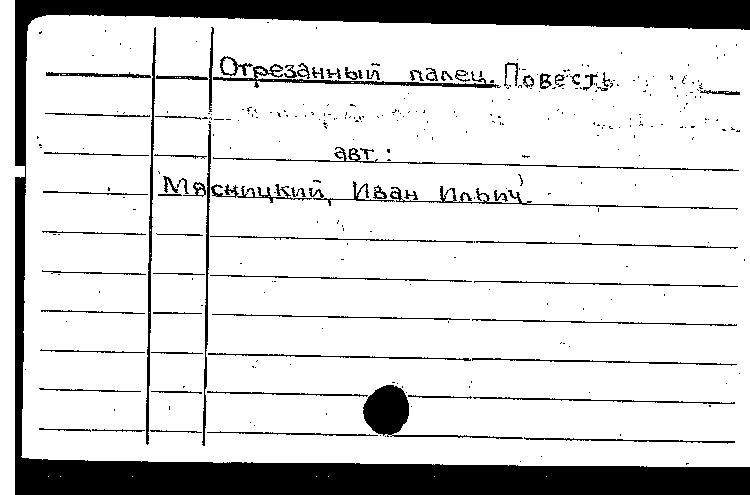 Отрезанный палец. Повесть
авт.:
Мясницкий, Иван Ильич